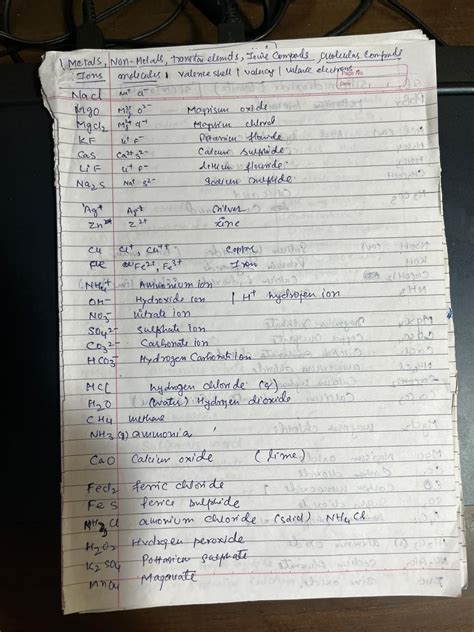 Metals, Non-Metals, transition elements, Ionic Compounds, Molecular Compounds
Ions molecules valence shell / valency / valence electrons
Page No.
NaCl Na⁺ Cl⁻
MgO Mg²⁺ O²⁻ Magnisium oxide
MgCl₂ Mg²⁺ Cl⁻ Magnisium chlorid
KF K⁺ F⁻ Potassium flouride
CaS Ca²⁺ S²⁻ Calcium sulphide
LiF Li⁺ F⁻ Lithium flouride
Na₂S Na⁺ S²⁻ Sodium sulphide
Ag⁺ Ag⁺ silver
Zn²⁺ Z²⁺ zinc
Cu Cu⁺, Cu⁺⁺ Copper
Fe Fe²⁺, Fe³⁺ Iron
NH₄⁺ Ammonium ion
OH⁻ Hydroxide ion | H⁺ hydrogen ion
NO₃⁻ nitrate ion
SO₄²⁻ sulphate ion
CO₃²⁻ Carbonate ion
HCO₃⁻ Hydrogen Carbonate ion
HCl hydrogen chloride (g)
H₂O (water) Hydrogen dioxide
CH₄ methane
NH₃ (g) ammonia
CaO Calcium oxide (lime)
FeCl₂ feric chloride
FeS ferice sulphide
Cl amonium chloride (solid) NH₄Cl
H₂O₂ Hydrogen peroxide
K₂SO₄ Pottassium sulphate